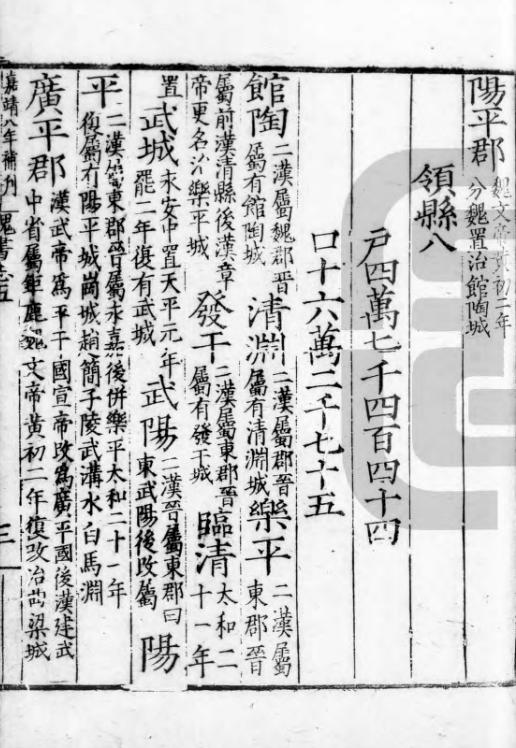 陽平郡 魏文帝黃初二年
分魏置治館陶城
領縣八
戶四萬七千四百四十四
口十六萬二千七十五
館陶 二漢屬魏郡晉
屬有館陶城
清淵 二漢屬郡晉
屬有清淵城
樂平 二漢屬
東郡晉
屬前漢清縣後漢章
帝更名治樂平城
發干 二漢屬東郡晉
屬有發干城
臨清 太和二
十一年
置 武城 永安中置天平元年
罷二年復有武城
武陽 二漢晉屬東郡曰
東武陽後改屬
陽
平 二漢屬東郡晉屬永嘉後併樂平太和二十一年
復屬有陽平城崗城趙簡子陵武溝水白馬淵
廣平郡 漢武帝爲平干國宣帝改爲廣平國後漢建武
中省屬鉅鹿魏文帝黃初二年復改治曲梁城
嘉靖八年補刊 魏書志五 三